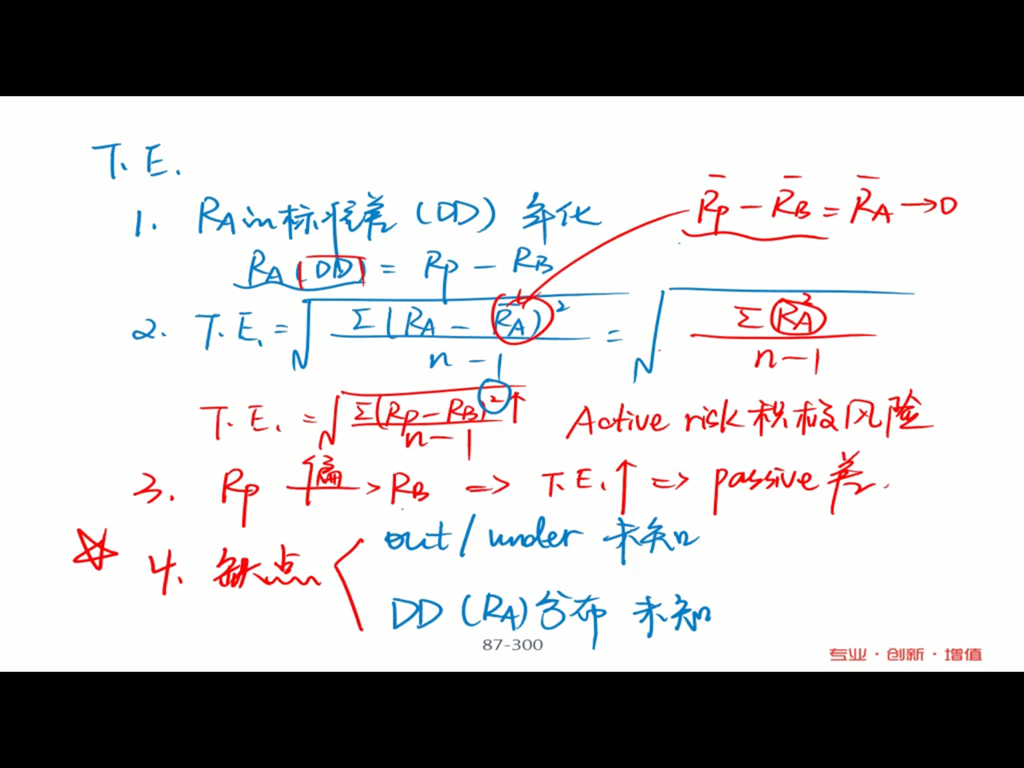 T. E.
1. RA in 标准差 (DD) 年化
R̄P − R̄B = R̄A → 0
RA (DD) = RP − RB
2. T. E. = √(Σ(RA − R̄A)² / (n − 1)) = √(Σ(RA²) / (n − 1))
T. E. = √(Σ(RP − RB)² / (n − 1)) ↑ Active risk 积极风险
3. RP 偏→ RB => T. E. ↑ => passive 差.
4. 缺点
out / under 未知
DD (RA) 分布 未知
87-300
专业·创新·增值